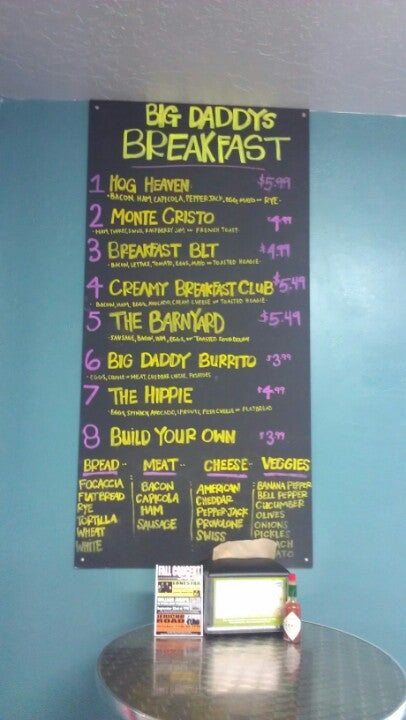 BIG DADDY'S
BREAKFAST
1 HOG HEAVEN $5.99
• BACON, HAM, CAPICOLA, PEPPER JACK, EGG, MAYO ON RYE •
2 MONTE CRISTO $4.99
• HAM, TURKEY, SWISS, RASPBERRY JAM ON FRENCH TOAST
3 BREAKFAST BLT $4.99
• BACON, LETTUCE, TOMATO, EGGS, MAYO ON TOASTED HOAGIE •
4 CREAMY BREAKFAST CLUB $5.49
• BACON, HAM, EGGS, AVOCADO, CREAM CHEESE ON TOASTED HOAGIE •
5 THE BARNYARD $5.49
• SAUSAGE, BACON, HAM, EGGS, ON TOASTED
6 BIG DADDY BURRITO $3.99
• EGGS, CHOICE OF MEAT, CHEDDAR CHEESE, POTATOES
7 THE HIPPIE $4.99
• EGGS, SPINACH, AVOCADO, SPROUTS, ON FLATBREAD
8 BUILD YOUR OWN $3.99
BREAD •• MEAT •• CHEESE •• VEGGIES
FOCACCIA
FLATBREAD
RYE
TORTILLA
WHEAT
WHITE
BACON
CAPICOLA
HAM
SAUSAGE
AMERICAN
CHEDDAR
PEPPER-JACK
PROVOLONE
SWISS
BANANA PEPPER
BELL PEPPER
CUCUMBER
OLIVES
ONIONS
PICKLES
FALL CONCERT
LONESTAR
JERICHO
ROAD